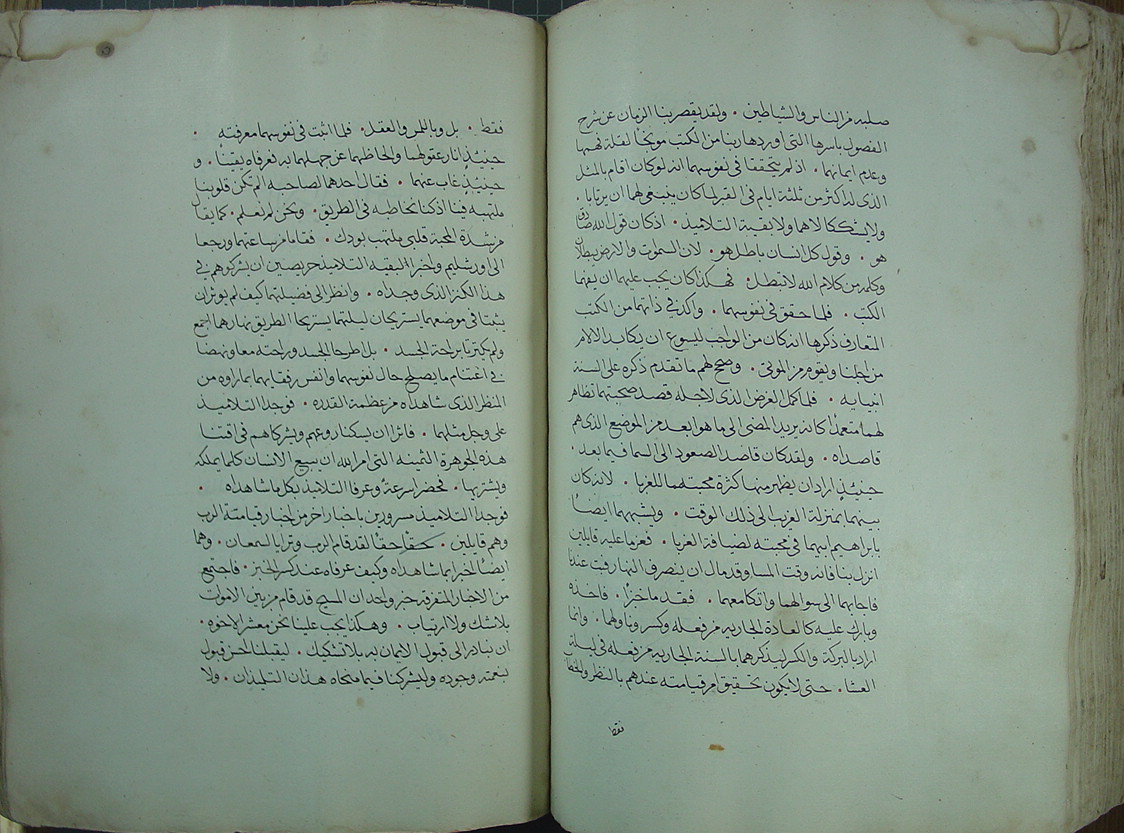 صلبه من الناس والشياطين . ولقد يقصر بنا الزمان عن شرح
الفصول باسرها التى اوردها ربنا من الكتب موبخا لقلة فهمها
وعدم ايمانهما . اذ لم يتحققا فى نفوسهما انه لو كان اقام بالمثل
الذى له اكثر من ثلثة ايام فى القبر لما كان ينبغى لهما ان يرتابا .
ولا يشككا لاهما ولا بقية التلاميذ . اذ كان قول الله صادق
هو . وقول كل انسان باطل هو . لان السموات والارض يبطلان
وكلمه من كلام الله لا تبطل . فهكذا كان يجب عليهما ان يفهما
الكتب . فلما حقق فى نفوسهما . واكد فى ذاتهما من الكتب
المتعارف ذكرها انه كان من الواجب ليسوع ان يكابد الالام
من اجلنا ويقوم من الموتى . وصح لهم ما تقدم ذكره على السنة
انبيايه . فلما كمل الغرض الذى لاجله قصد صحبتهما تظاهر
لهما متعمدا كانه يريد المضى الى ما هو ابعد من الموضع الذى هم
قاصداه . ولقد كان قاصد الصعود الى السما فيما بعد .
حينيذ اراد ان يظهر منهما كثرة محبتهما للغربا . لانه كان
بينهما بمنزلة الغريب الى ذلك الوقت . ويشبههما ايضا
بابراهيم ابيهما فى محبته لضيافة الغربا . فعزما عليه قايلين
انزل بنا فانه وقت المسا وقد مال ان ينصرف النهار فبت عندنا
فاجابهما الى سوالهما واتكا معهما . فقدما خبزا . فاخذه
وبارك عليه كالعادة الجاريه من فعله وكسر وناولهما . وانما
اراد بالبركة والكسر ليذكرهما بالسنة الجاريه من فعله فى ليلة
العشا . حتى لا يكون تحقيق امر قيامته عندهم بالنظر والخطاب
فقط
فقط . بل وباللمس والعقل . فلما اثبت فى نفوسهما معرفته .
حينيذ انار عقولهما والحاظهما عن جهلهما به فعرفاه يقينا . و
حينيذ غاب عنهما . فقال احدهما لصاحبه الم تكن قلوبنا
ملتهبه فينا اذ كنا نخاطبه فى الطريق . ونحن لم نعلم . كما يقال
من شدة المحبة قلبى ملتهب بودك . فقاما من ساعتهما ورجعا
الى اورشليم واخبرا لبقيه التلاميذ حريصين ان يشركوهم فى
هذا الكنز الذى وجداه . وانظر الى فضيلتهما كيف لم يوثران
يثبتا فى موضعهما يستريحان ليلتهما يستريحا الطريق نهارهما اجمع
ولم يكترثا براحة الجسد . بل طرحا الجسد وراحته معا ونهضا
فى اغتنام ما يصلح حال نفوسهما وانفس رفقايهما بما راوه من
المنظر الذى شاهداه من عظمة القدره . فوجدا التلاميذ
على وجل مثلهما . فاثرا ان يسكنا روعهم ويشركاهم فى اقتنا
هذه الجوهرة الثمينه التى امر الله ان يبيع الانسان كلما يملكه
ويشتريها . فحضرا سرعة وعرفا التلاميذ بكل ما شاهداه .
فوجدا التلاميذ مسرورين باخبار اخر من اخبار قيامته الرب
وهم قايلين . حقا حقا لقد قام الرب وترايا لسمعان . وهما
ايضا اخبرا بما شاهداه وكيف عرفاه عند كسر الخبز . فاجتمع
من الاخبار المتفرقه خبر واحد ان المسيح قد قام من بين الاموات
بلا شك ولا ارتياب . وهكذا يجب علينا نحن معشر الاخوه .
ان نبادر الى قبول الايمان به بلا تشكيك . ليقبلنا احسن قبول
بنعمته وجوده وليشركنا فيما منحاه هذان التلميذان . ولا